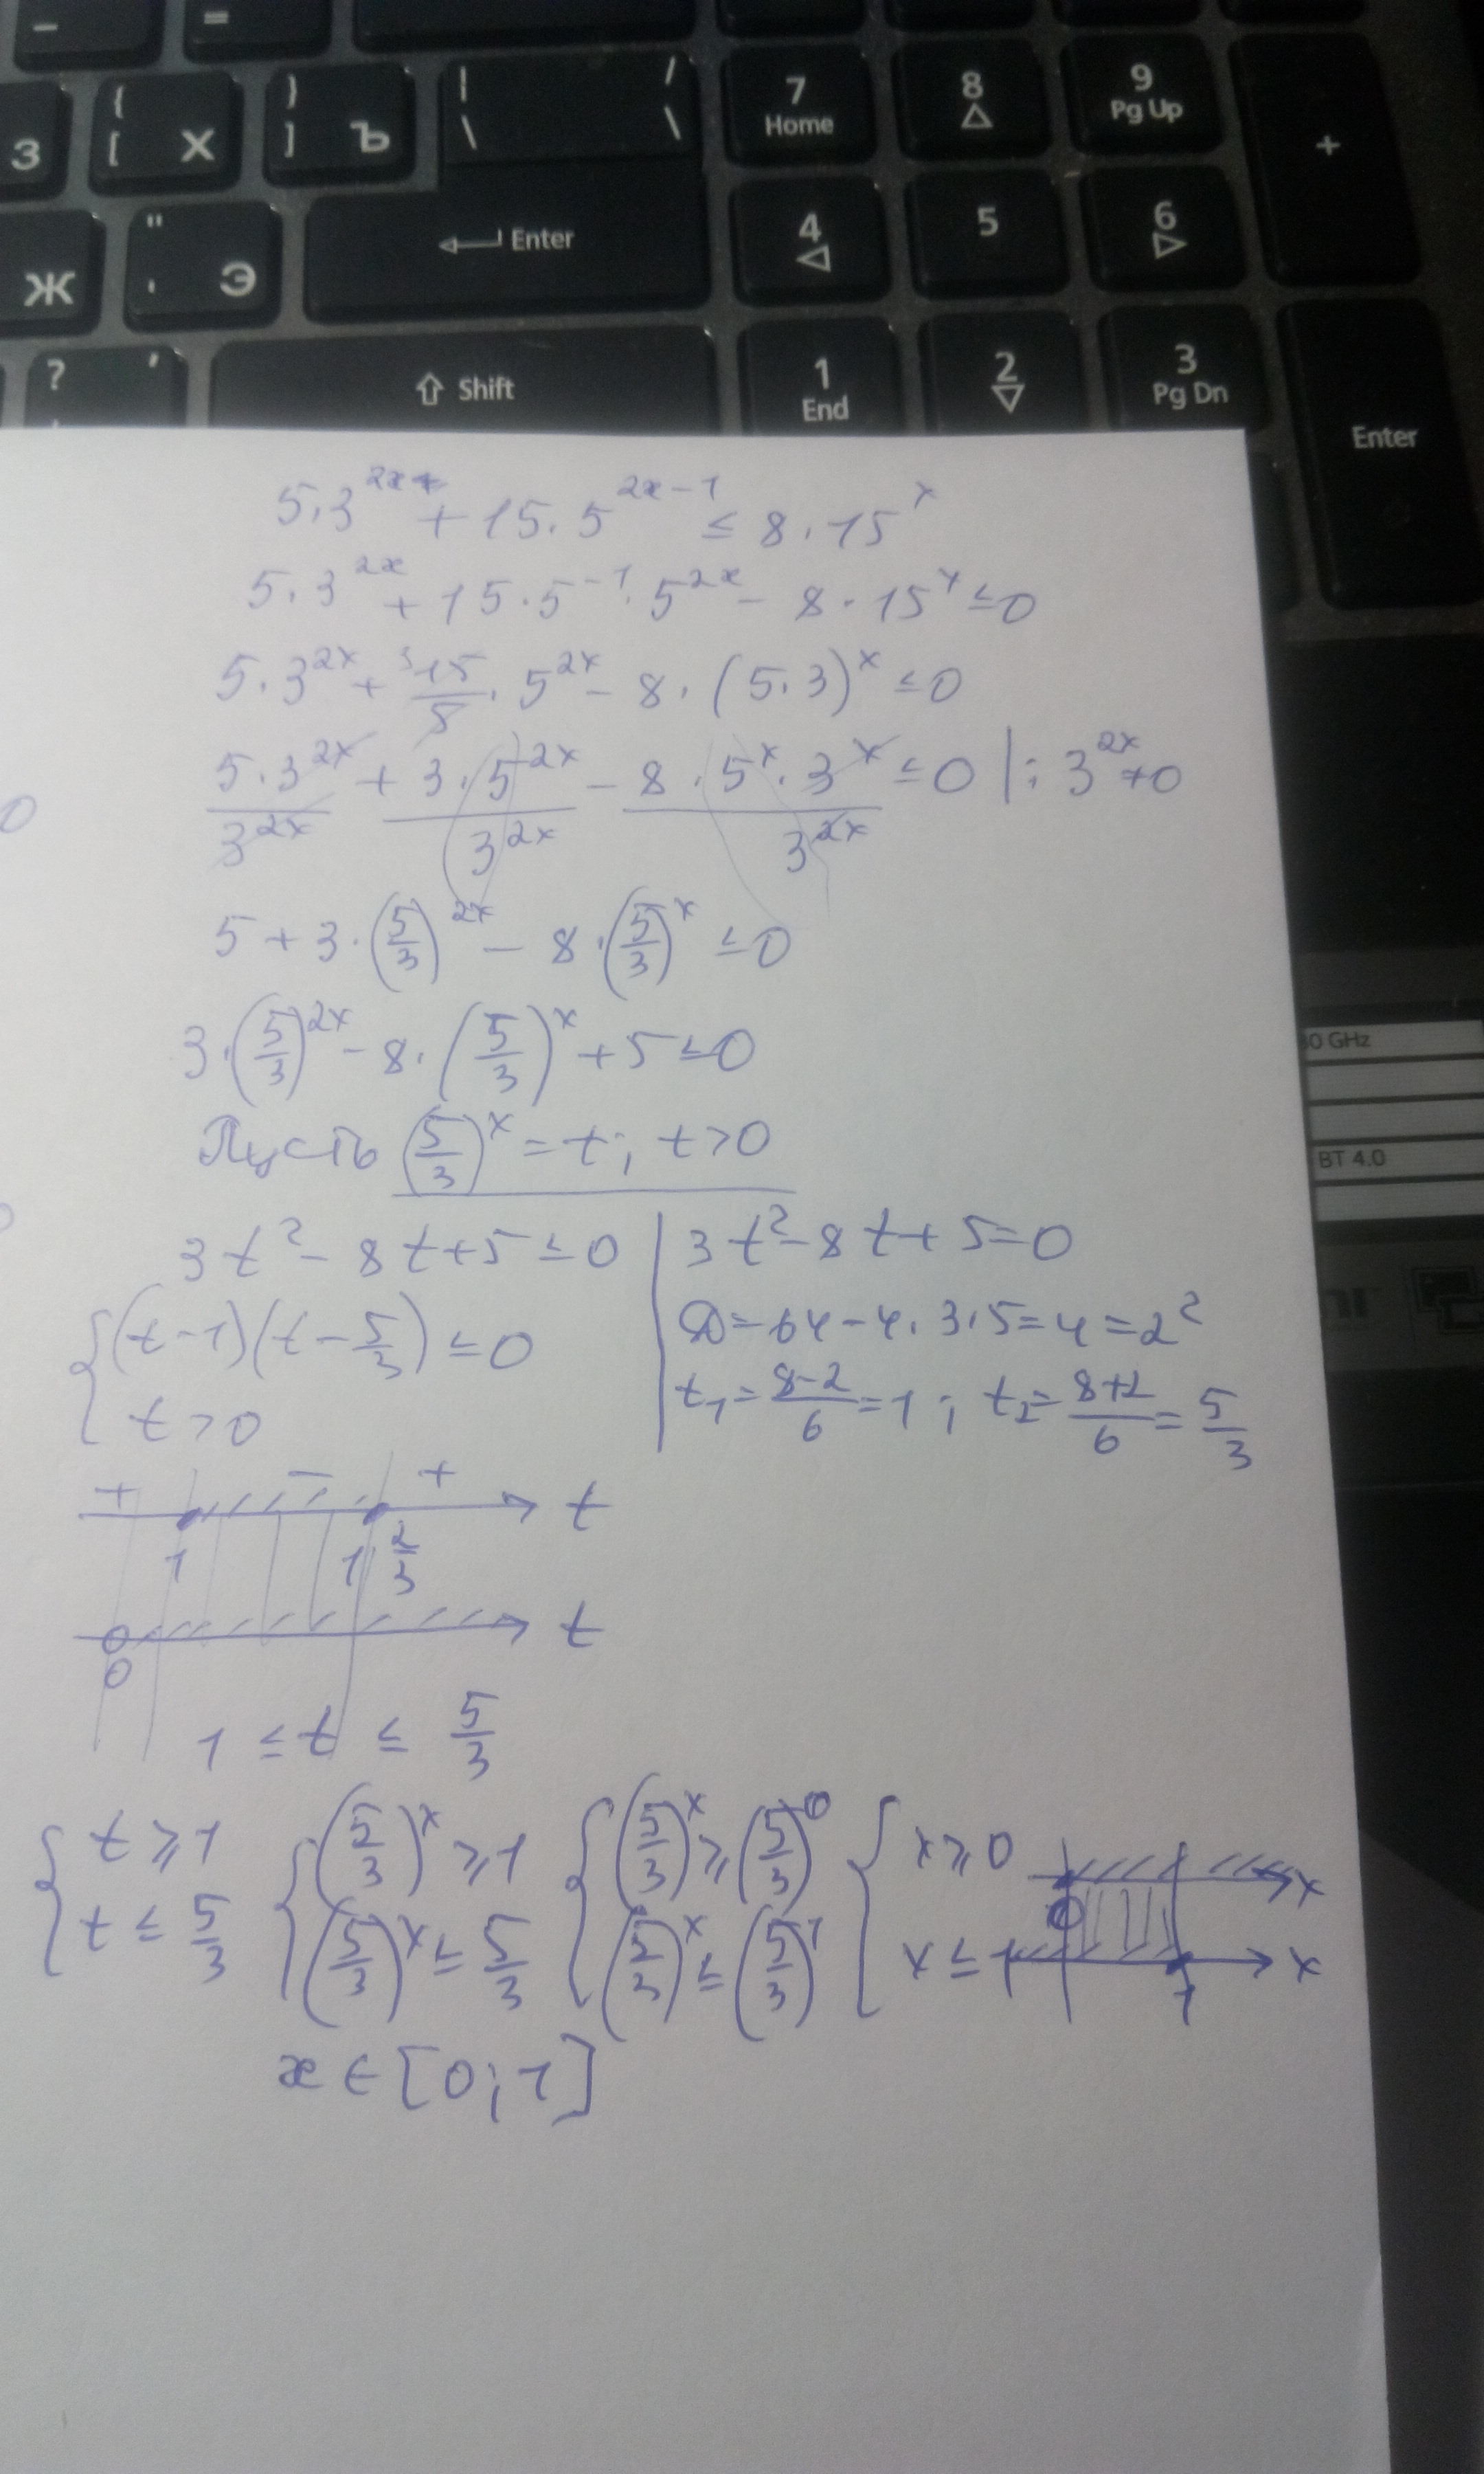 - =
З { [ Х } ] Ъ | \ / \ 7 Home 8 9 Pg Up +
Ж " ' Э Enter 4 5 6
? ' Shift 1 End 2 3 Pg Dn Enter
5·3^2x + 15·5^2x-1 ≤ 8·15^x
5·3^2x + 15·5^-1·5^2x - 8·15^x ≤ 0
5·3^2x + 15/5 ^3 ·5^2x - 8·(5·3)^x ≤ 0
5·3^2x/3^2x + 3·5^2x/3^2x - 8·5^x·3^x/3^2x ≤ 0 |: 3^2x ≠ 0
0
5 + 3·(5/3)^2x - 8·(5/3)^x ≤ 0
3·(5/3)^2x - 8·(5/3)^x + 5 ≤ 0
0 GHz
Пусть (5/3)^x = t; t > 0
BT 4.0
3t² - 8t + 5 ≤ 0 | 3t² - 8t + 5 = 0
{ (t-1)(t - 5/3) ≤ 0
t > 0
D = 64 - 4·3·5 = 4 = 2²
t₁ = 8-2/6 = 1; t₂ = 8+2/6 = 5/3
+ - + t
1 1 2/3
t
0
1 ≤ t ≤ 5/3
{ t ≥ 1 { (5/3)^x ≥ 1 { (5/3)^x ≥ (5/3)^0 { x ≥ 0 x
0
t ≤ 5/3 (5/3)^x ≤ 5/3 (5/3)^x ≤ (5/3)^1 x ≤ 1 x
1
x ∈ [0; 1]